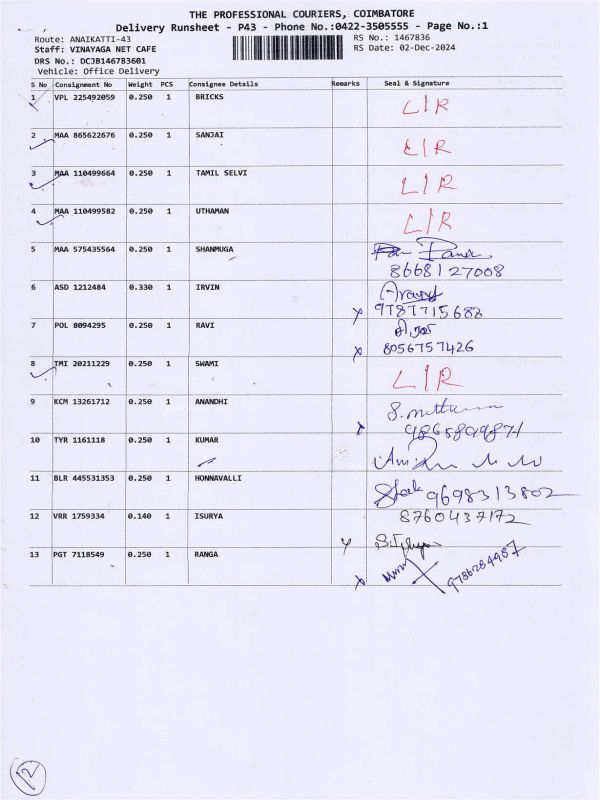 THE PROFESSIONAL COURIERS, COIMBATORE
Delivery Runsheet - P43 - Phone No.:0422-3505555 - Page No.:1
Route: ANAIKATTI-43 RS No.: 1467836
Staff: VINAYAGA NET CAFE RS Date: 02-Dec-2024
DRS No.: DCJB146783601
Vehicle: Office Delivery
S No Consignment No Weight PCS Consignee Details Remarks Seal & Signature
1 VPL 225492059 0.250 1 BRICKS L/R
2 MAA 865622676 0.250 1 SANJAI L/R
3 MAA 110499664 0.250 1 TAMIL SELVI L/R
4 MAA 110499582 0.250 1 UTHAMAN L/R
5 MAA 575435564 0.250 1 SHANMUGA
8668127008
6 ASD 1212484 0.330 1 IRVIN
9787715688
7 POL 8094295 0.250 1 RAVI
8056757426
8 TMI 20211229 0.250 1 SWAMI L/R
9 KCM 13261712 0.250 1 ANANDHI
10 TYR 1161118 0.250 1 KUMAR
11 BLR 445531353 0.250 1 HONNAVALLI 9698313802
12 VRR 1759334 0.140 1 ISURYA 8760437172
13 PGT 7118549 0.250 1 RANGA 9786284987
12